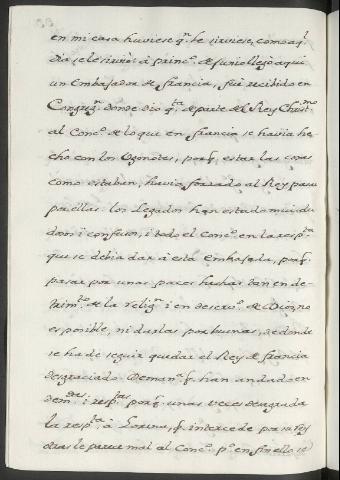 en mi casa huviese q.n le sirviese, como aq.l
dia se le sirvió. à princ.o de Junio llegò aqui
un Embajador de francia, fuè recibido en
Congreg.n donde dio q.ta de parte del Rey Christ.mo
al Conc.o de lo que en francia se havia he
cho con los Ugonotes, porq. estar las cosas
como estaben, havia forzado al Rey pasar
por ellas. los Legados han estado mui du
dosos i confusos, i todo el Conc.o en la resp.ta
que se debia dar à esta Embajada, porq.
pasar por unas paces hechas tan en de-
trim.to de la relig.n i en deserv.o de Dios, no
es posible, ni darlas por buenas, de donde
se ha de seguir quedar el Rey de francia
desgraciado. Deman.a q. han andado en
dem.das i resp.tas porq. unas veces desagrada
la resp.ta à Lorena, q. intercede por su Rey
otras le parece mal al Conc.o p.o en fin ello se